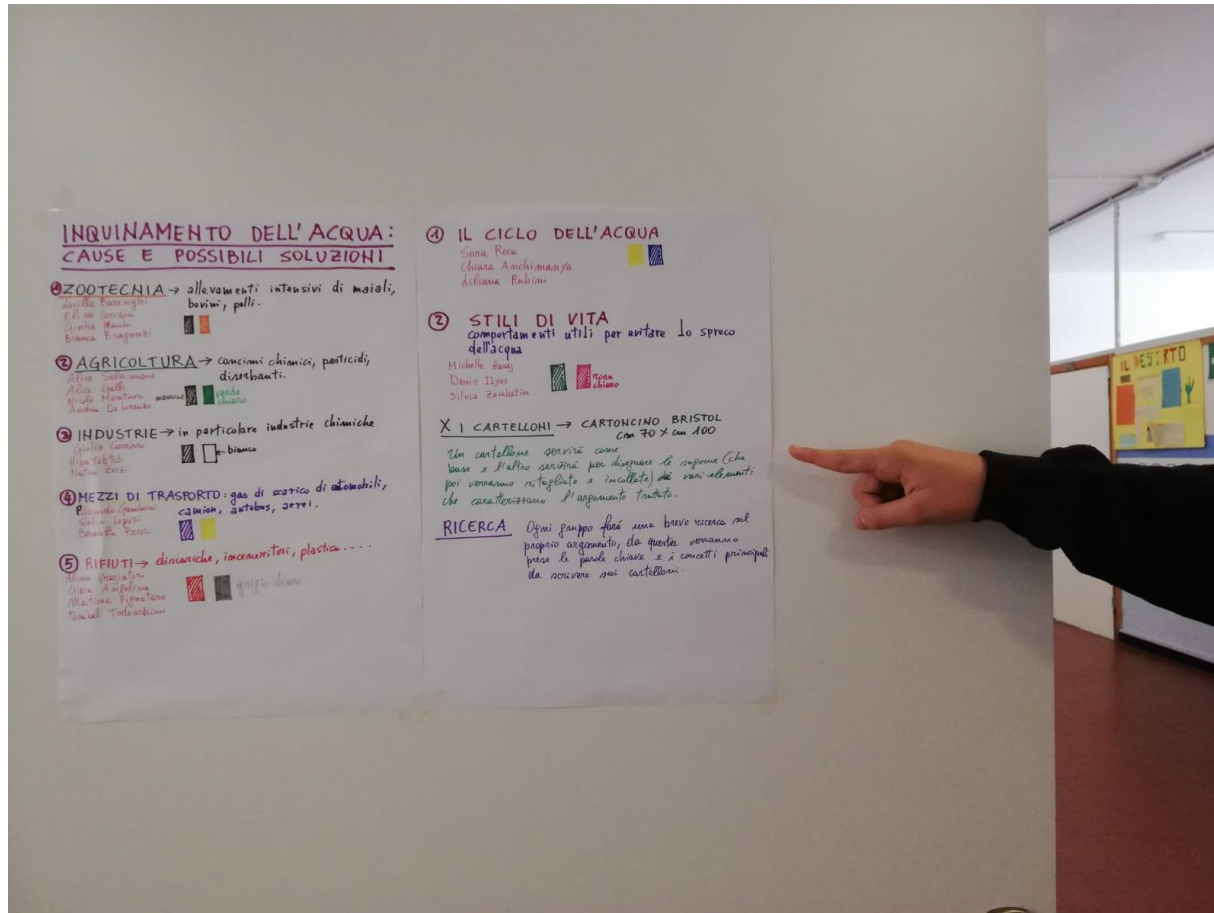 INQUINAMENTO DELL'ACQUA:
CAUSE E POSSIBILI SOLUZIONI
① ZOOTECNIA → allevamenti intensivi di maiali,
bovini, polli.
Elisa
Giulia
Bianca
② AGRICOLTURA → concimi chimici, pesticidi,
diserbanti.
Alice
Alice Galli
Nicole
Andrea De Lorenzo
marrone
verde
chiaro
③ INDUSTRIE → in particolare industrie chimiche
Giulia
bianco
④ MEZZI DI TRASPORTO: gas di scarico di automobili,
camion, autobus, aerei.
Riccardo
Benedetta
⑤ RIFIUTI → discariche, inceneritori, plastica.....
Gioia
Martina Pignataro
Isabel Todeschini
grigio chiaro
① IL CICLO DELL'ACQUA
Sara Rosa
Chiara
Liliana Rubini
② STILI DI VITA
comportamenti utili per evitare lo spreco
dell'acqua
Michelle
Denis Ilyes
Silvia Zacchetin
rosa
chiaro
X I CARTELLONI → CARTONCINO BRISTOL
cm 70 X cm 100
Un cartellone servirà come
base e l'altro servirà per disegnare le sagome (che
poi verranno ritagliate e incollate) dei vari elementi
che caratterizzano l'argomento trattato.
RICERCA Ogni gruppo farà una breve ricerca sul
proprio argomento, da questa verranno
prese le parole chiave e i concetti principali
da scrivere sui cartelloni.
IL DESERTO